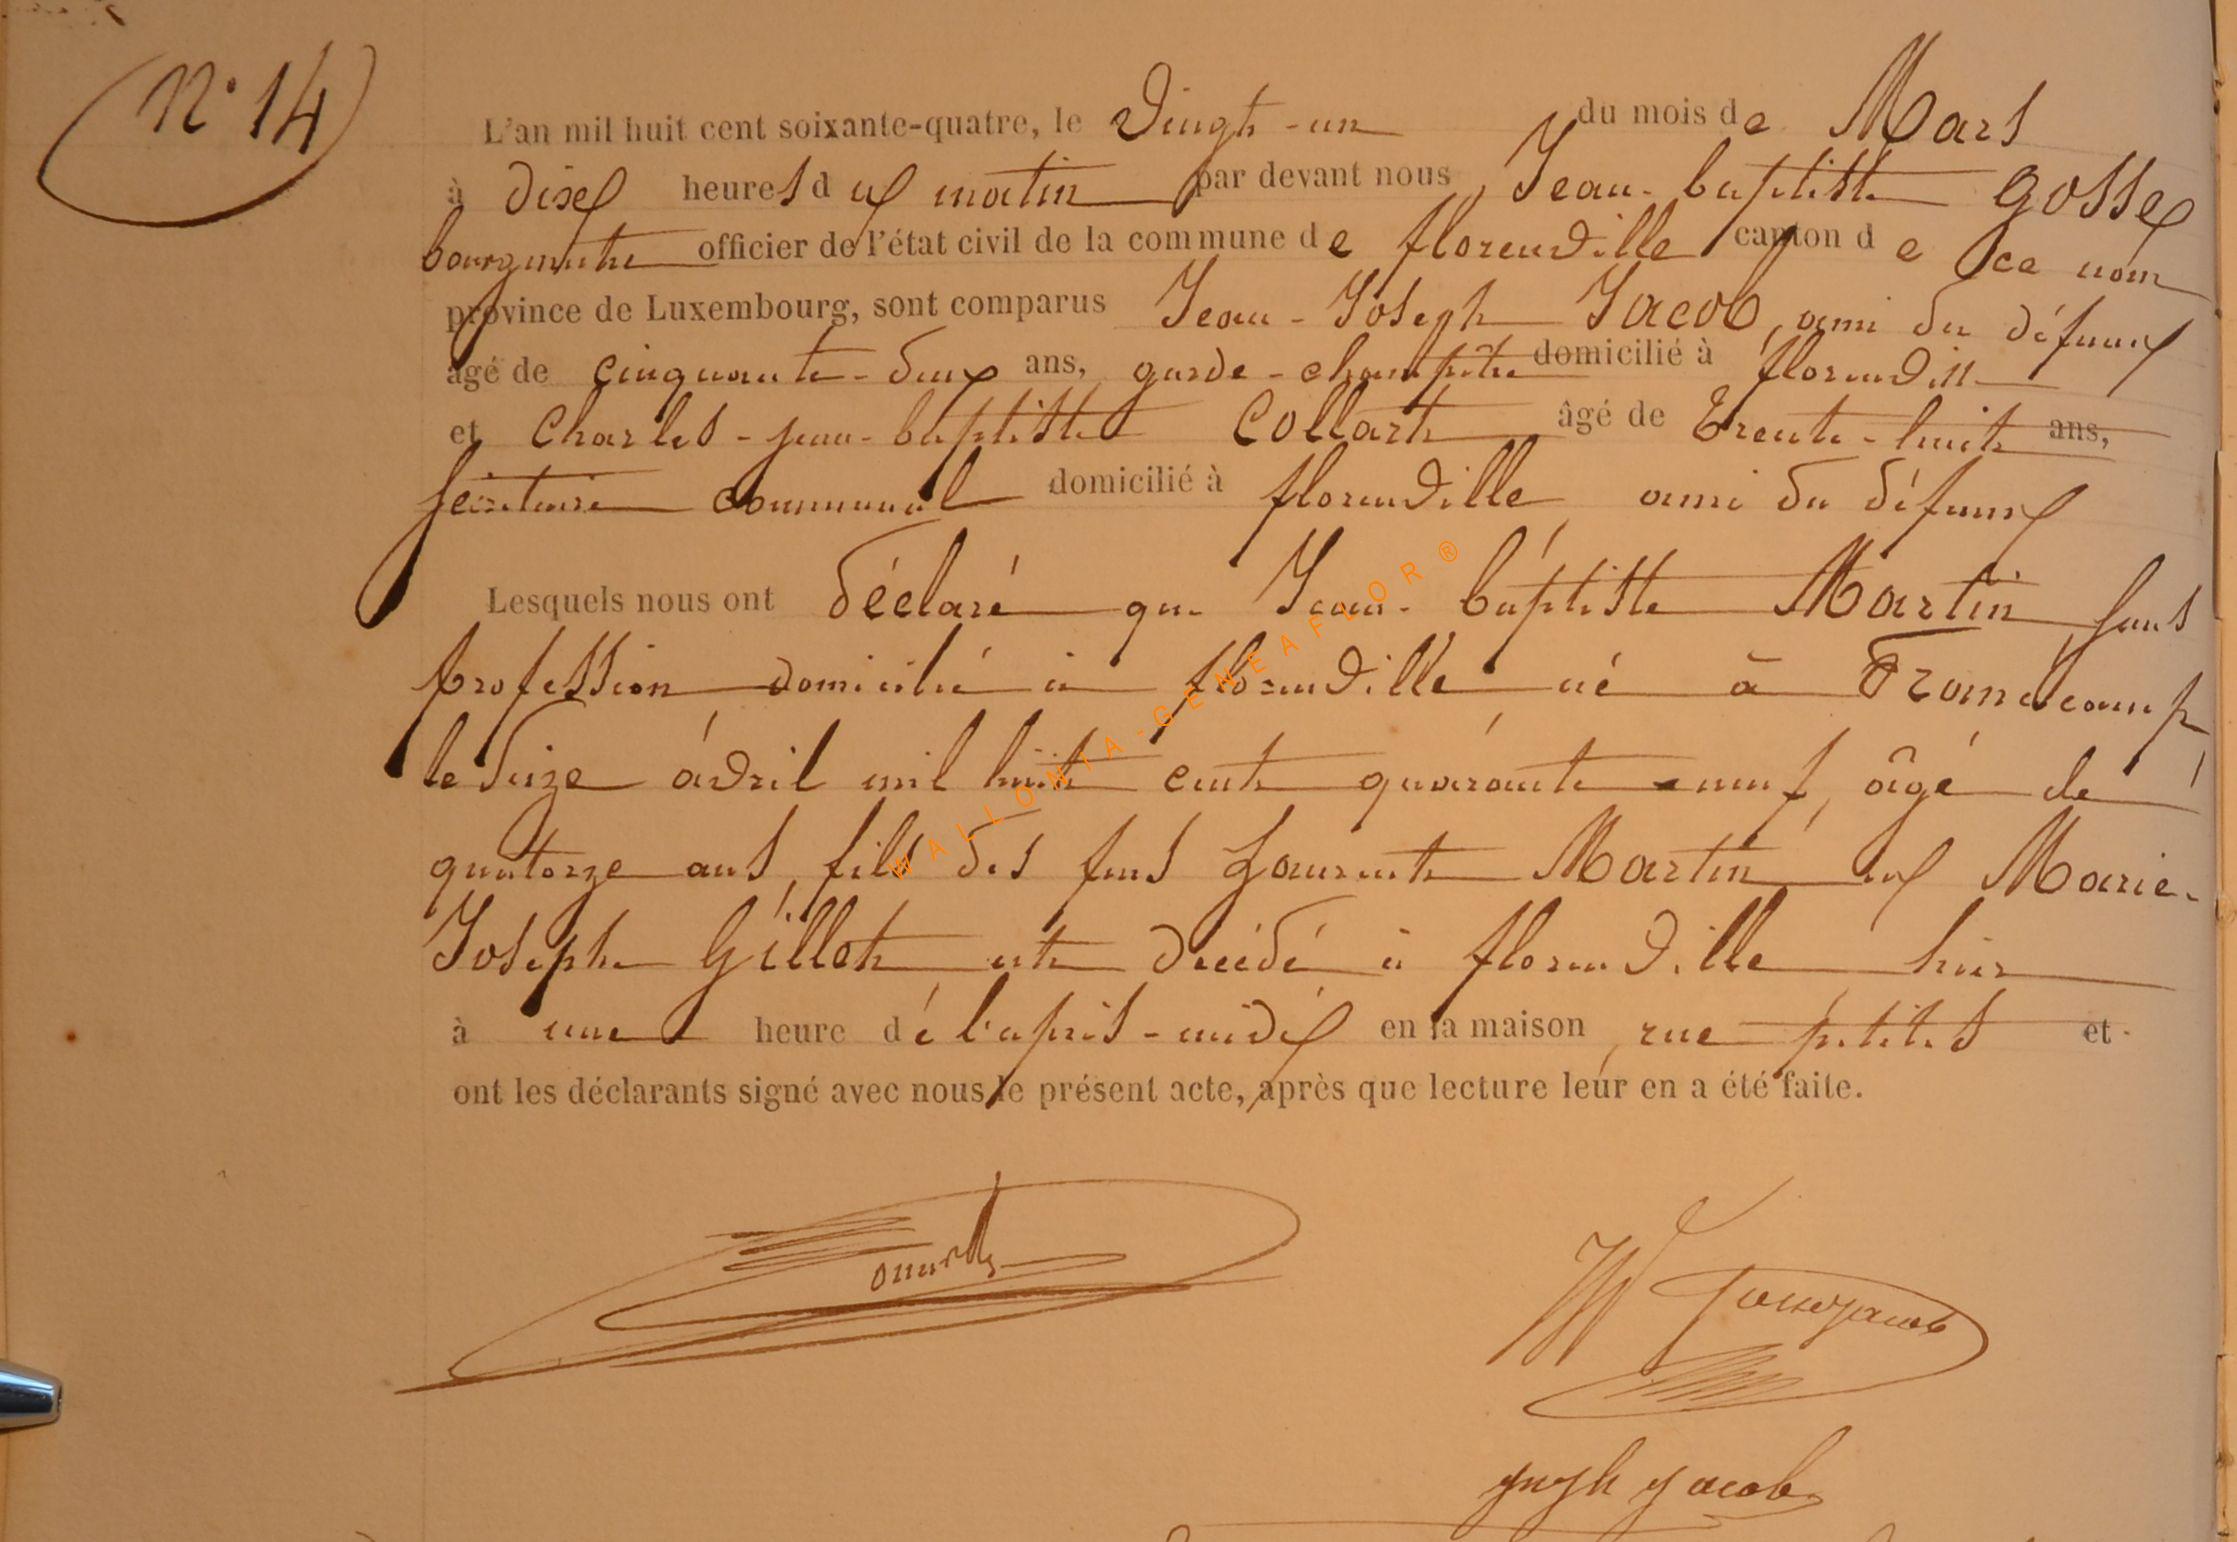 N° 14
L'an mil huit cent soixante-quatre, le Vingt-un du mois de Mars
à dix heures du matin par devant nous, Jean-baptiste Gosse
bourgmestre officier de l'état civil de la commune de florenville canton de ce nom
province de Luxembourg, sont comparus Jean-Joseph Jacob, ami du défunt
âgé de cinquante-deux ans, garde-champêtre domicilié à florenville
et Charles-jean-baptiste Collart âgé de Trente-huit ans,
secrétaire communal domicilié à florenville, ami du défunt
Lesquels nous ont déclaré que Jean-baptiste Martin, sans
profession domicilié à florenville né à
le seize avril mil huit cent quarante-neuf, âgé de
quatorze ans, fils des feus Laurent Martin et Marie-
Joseph Gillet est décédé à florenville hier
à une heure de l'après-midi en la maison, rue petites et
ont les déclarants signé avec nous le présent acte, après que lecture leur en a été faite.
WALLONIA-GENEAFLOR®
Jacob